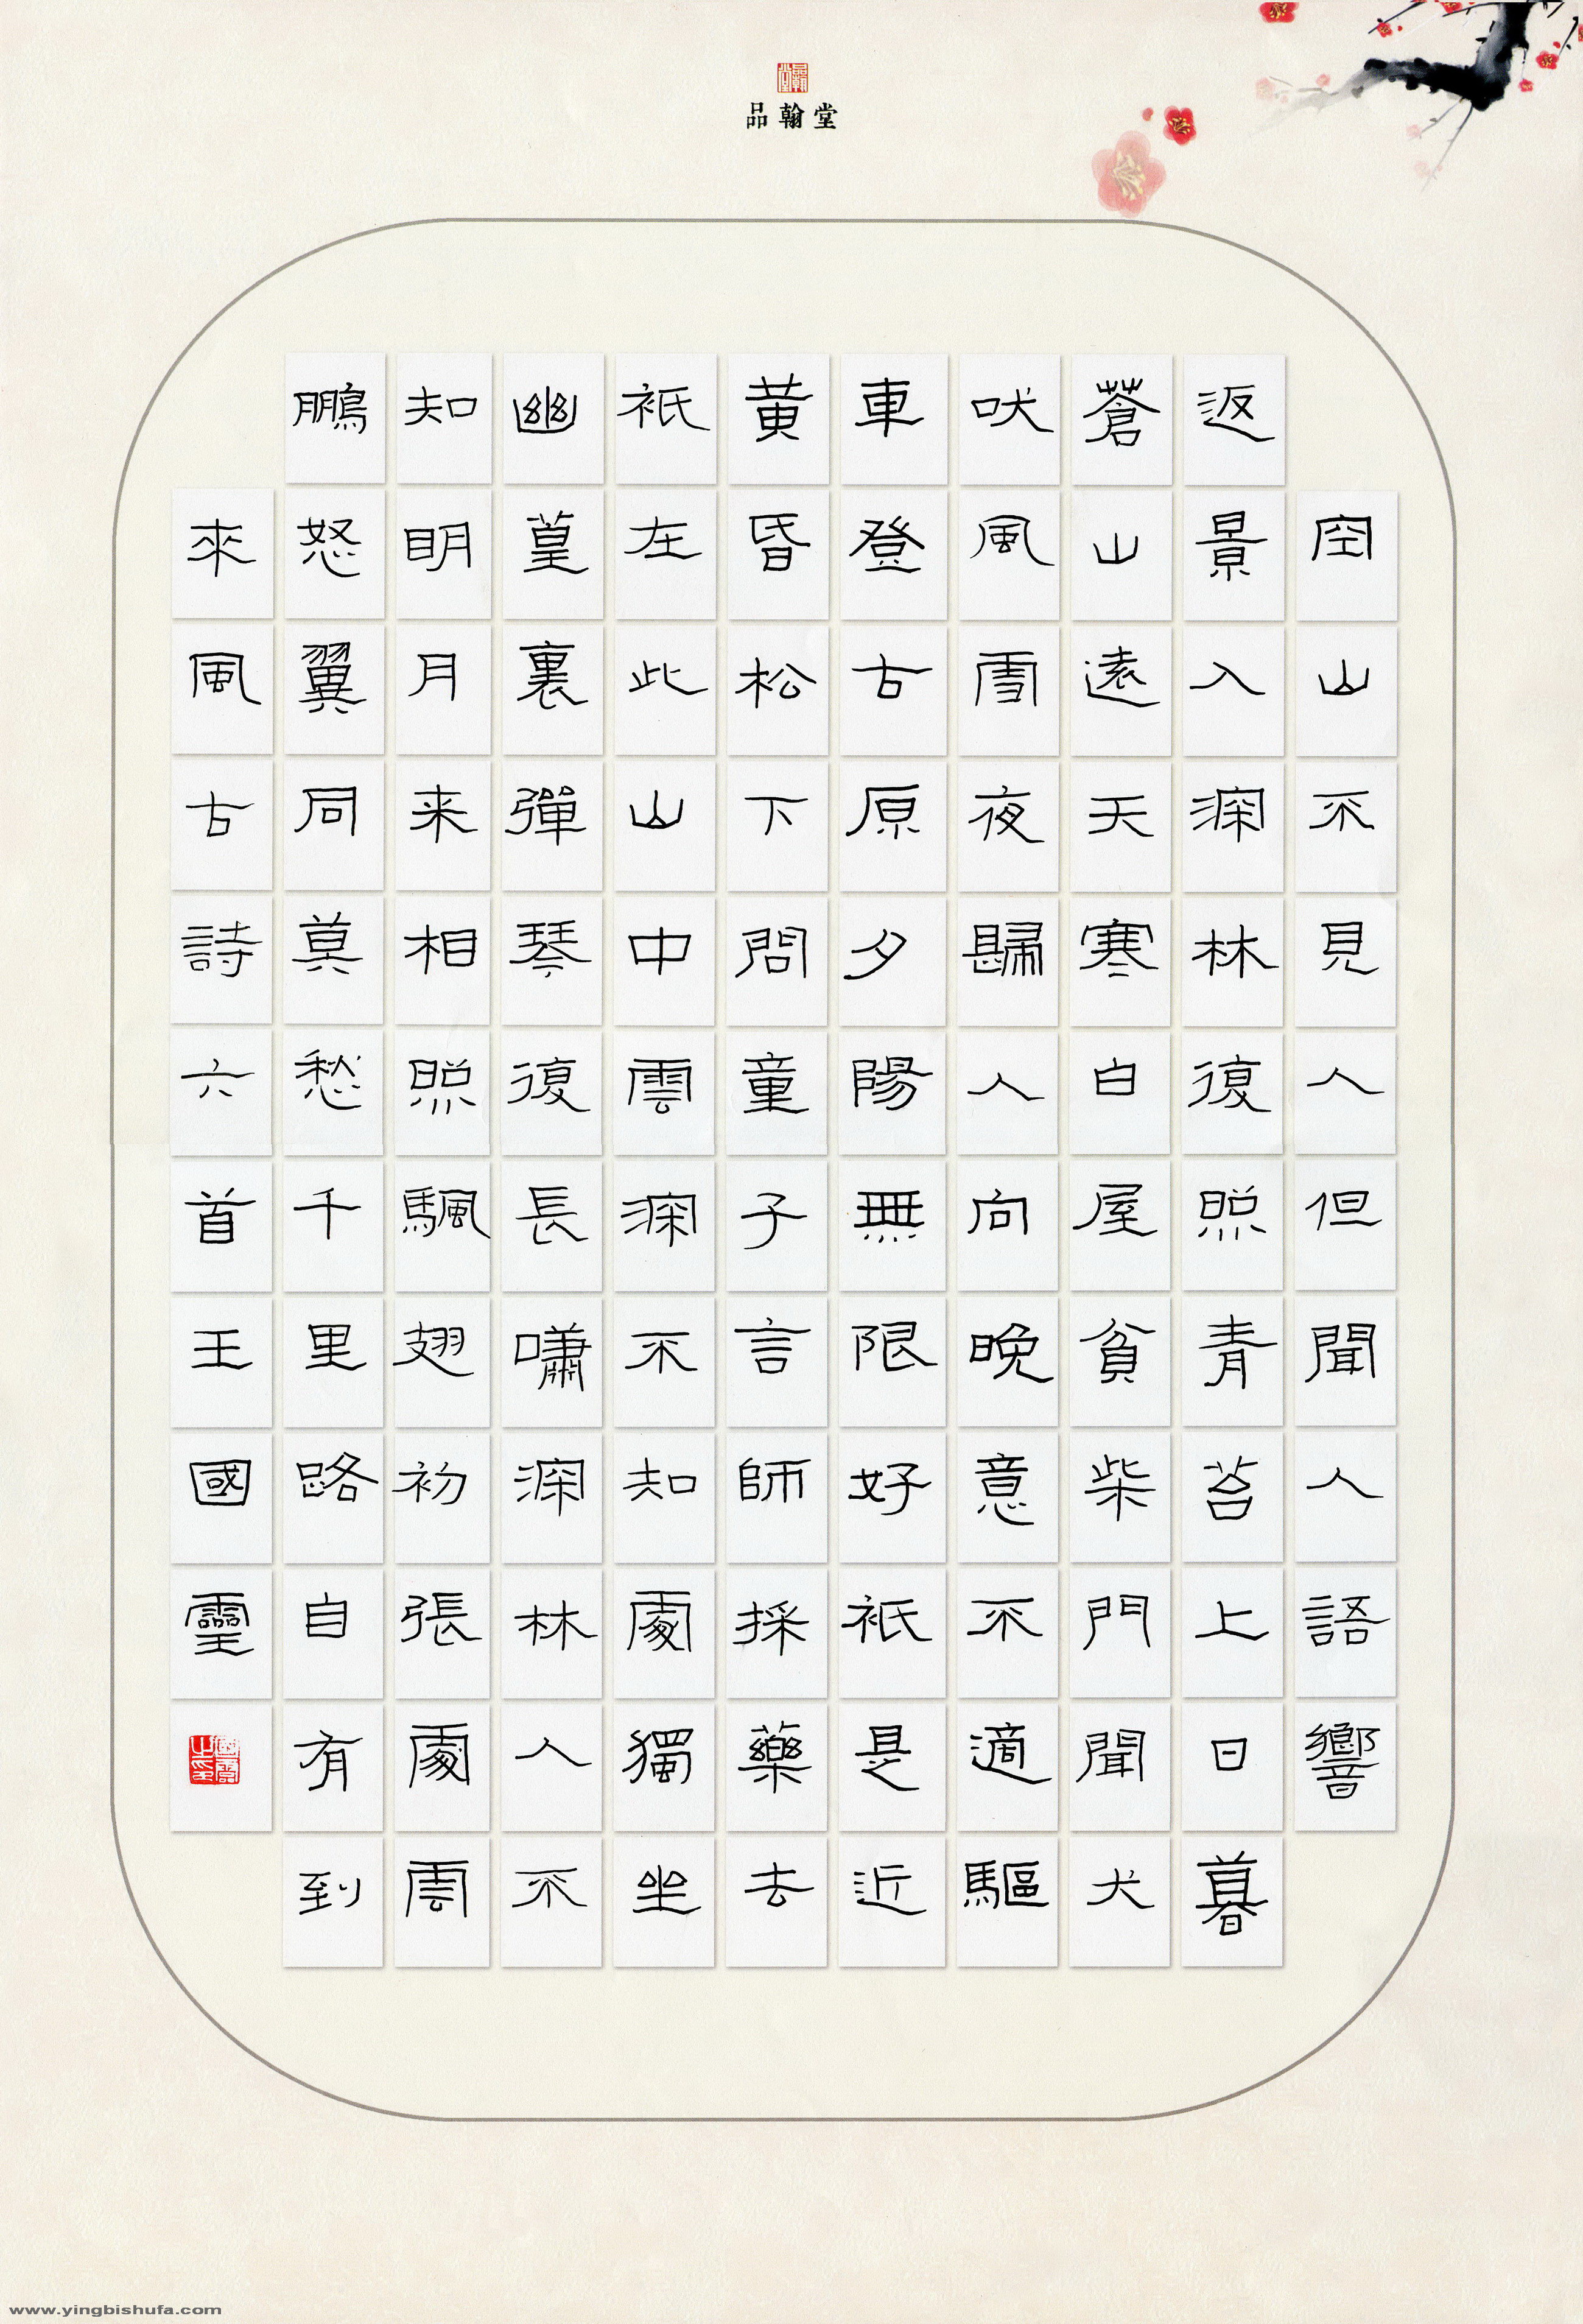 品翰堂
空山不見人但聞人語響
返景入深林復照青苔上日暮
蒼山遠天寒白屋貧柴門聞犬
吠風雪夜歸人向晚意不適驅
車登古原夕陽無限好祇是近
黄昏松下問童子言師採藥去
祇在此山中雲深不知處獨坐
幽篁裏彈琴復長嘯深林人不
知明月来相照颿翅初張處雲
鵬怒翼同莫愁千里路自有到
來風古詩六首王國靈
www.yingbishufa.com